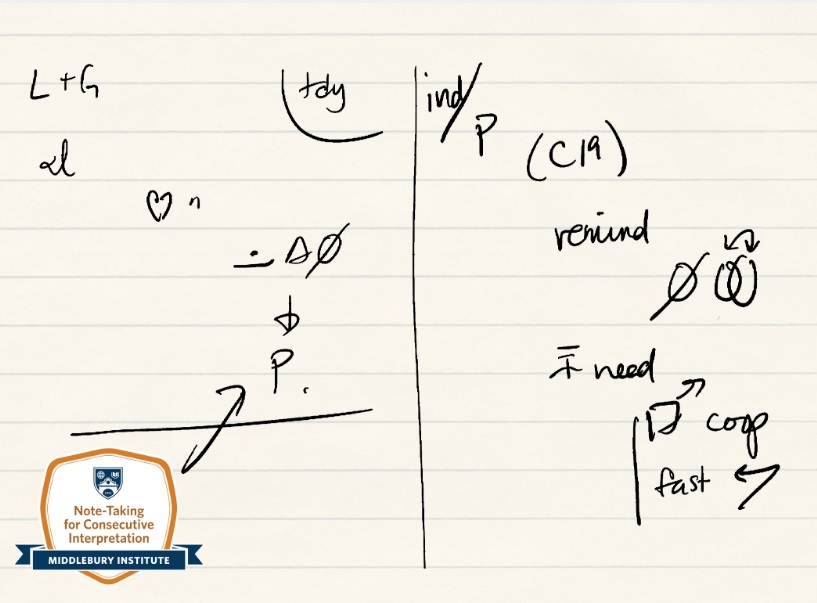 L + G
tdy
♡ n
P.
ind/P
(C19)
remind
need
coop
fast
Note-Taking
for Consecutive
Interpretation
MIDDLEBURY INSTITUTE